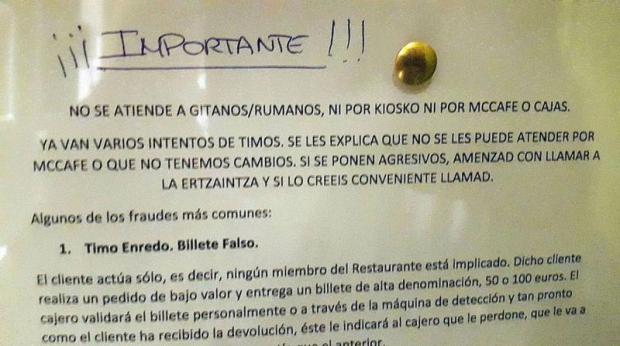 ¡¡¡ IMPORTANTE !!!
NO SE ATIENDE A GITANOS/RUMANOS, NI POR KIOSKO NI POR MCCAFE O CAJAS.
YA VAN VARIOS INTENTOS DE TIMOS. SE LES EXPLICA QUE NO SE LES PUEDE ATENDER POR
MCCAFE O QUE NO TENEMOS CAMBIOS. SI SE PONEN AGRESIVOS, AMENZAD CON LLAMAR A
LA ERTZAINTZA Y SI LO CREEIS CONVENIENTE LLAMAD.
Algunos de los fraudes más comunes:
1. Timo Enredo. Billete Falso.
El cliente actúa sólo, es decir, ningún miembro del Restaurante está implicado. Dicho cliente
realiza un pedido de bajo valor y entrega un billete de alta denominación, 50 o 100 euros. El
cajero validará el billete personalmente o a través de la máquina de detección y tan pronto
como el cliente ha recibido la devolución, éste le indicará al cajero que le perdone, que le va a
que el anterior.